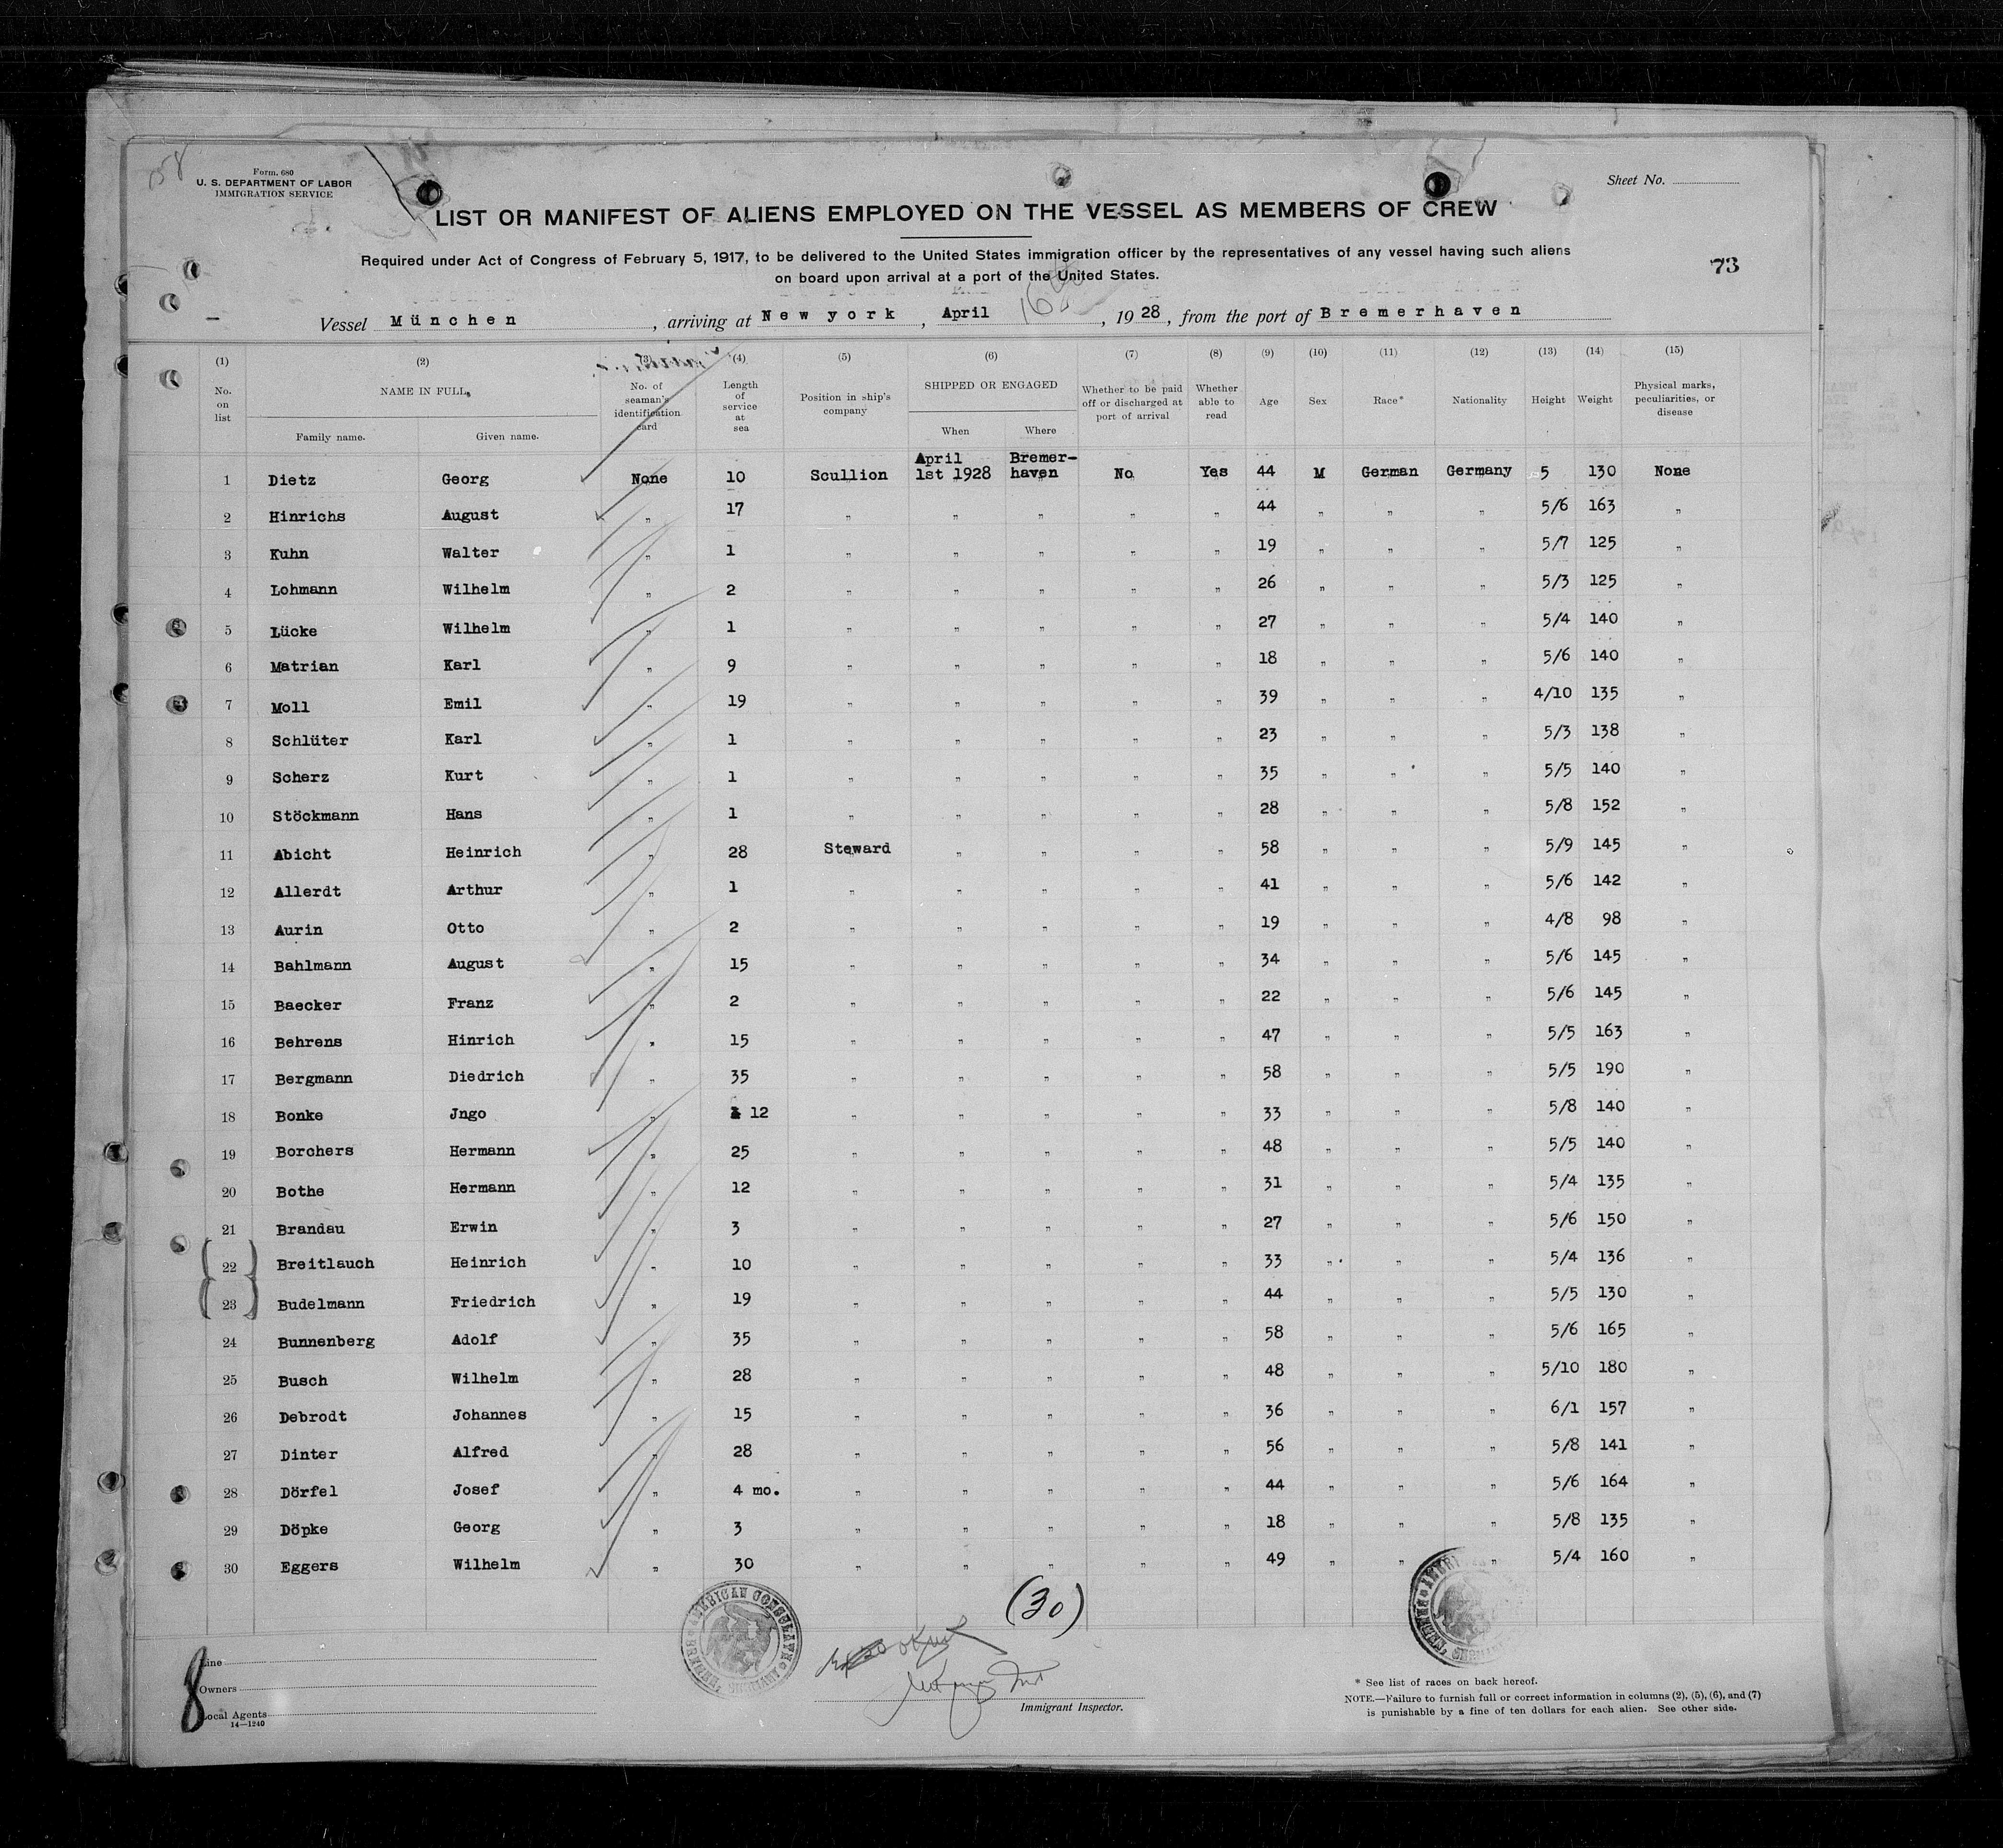 58
Form. 680
U. S. DEPARTMENT OF LABOR
IMMIGRATION SERVICE
Sheet No.
LIST OR MANIFEST OF ALIENS EMPLOYED ON THE VESSEL AS MEMBERS OF CREW
Required under Act of Congress of February 5, 1917, to be delivered to the United States immigration officer by the representatives of any vessel having such aliens
on board upon arrival at a port of the United States.
73
Vessel München , arriving at New york , April 16th , 1928 , from the port of Bremerhaven
(1) (2) (3) (4) (5) (6) (7) (8) (9) (10) (11) (12) (13) (14) (15)
No. on list NAME IN FULL Family name. Given name. No. of seaman's identification card Length of service at sea Position in ship's company SHIPPED OR ENGAGED When Where Whether to be paid off or discharged at port of arrival Whether able to read Age Sex Race* Nationality Height Weight Physical marks, peculiarities, or disease
1 Dietz Georg None 10 Scullion April 1st 1928 Bremer-haven No Yes 44 M German Germany 5 130 None
2 Hinrichs August " 17 " " " " " 44 " " " 5/6 163 "
3 Kuhn Walter " 1 " " " " " 19 " " " 5/7 125 "
4 Lohmann Wilhelm " 2 " " " " " 26 " " " 5/3 125 "
5 Lücke Wilhelm " 1 " " " " " 27 " " " 5/4 140 "
6 Matrian Karl " 9 " " " " " 18 " " " 5/6 140 "
7 Moll Emil " 19 " " " " " 39 " " " 4/10 135 "
8 Schlüter Karl " 1 " " " " " 23 " " " 5/3 138 "
9 Scherz Kurt " 1 " " " " " 35 " " " 5/5 140 "
10 Stöckmann Hans " 1 " " " " " 28 " " " 5/8 152 "
11 Abicht Heinrich " 28 Steward " " " " 58 " " " 5/9 145 "
12 Allerdt Arthur " 1 " " " " " 41 " " " 5/6 142 "
13 Aurin Otto " 2 " " " " " 19 " " " 4/8 98 "
14 Bahlmann August " 15 " " " " " 34 " " " 5/6 145 "
15 Baecker Franz " 2 " " " " " 22 " " " 5/6 145 "
16 Behrens Hinrich " 15 " " " " " 47 " " " 5/5 163 "
17 Bergmann Diedrich " 35 " " " " " 58 " " " 5/5 190 "
18 Bonke Jngo " 12 " " " " " 33 " " " 5/8 140 "
19 Borchers Hermann " 25 " " " " " 48 " " " 5/5 140 "
20 Bothe Hermann " 12 " " " " " 31 " " " 5/4 135 "
21 Brandau Erwin " 3 " " " " " 27 " " " 5/6 150 "
22 Breitlauch Heinrich " 10 " " " " " 33 " " " 5/4 136 "
23 Budelmann Friedrich " 19 " " " " " 44 " " " 5/5 130 "
24 Bunnenberg Adolf " 35 " " " " " 58 " " " 5/6 165 "
25 Busch Wilhelm " 28 " " " " " 48 " " " 5/10 180 "
26 Debrodt Johannes " 15 " " " " " 36 " " " 6/1 157 "
27 Dinter Alfred " 28 " " " " " 56 " " " 5/8 141 "
28 Dörfel Josef " 4 mo. " " " " " 44 " " " 5/6 164 "
29 Döpke Georg " 3 " " " " " 18 " " " 5/8 135 "
30 Eggers Wilhelm " 30 " " " " " 49 " " " 5/4 160 "
(30)
AMERICAN CONSULATE BREMEN, GERMANY
8
Line
Owners
Local Agents
14—1240
Immigrant Inspector.
* See list of races on back hereof.
NOTE.—Failure to furnish full or correct information in columns (2), (5), (6), and (7)
is punishable by a fine of ten dollars for each alien. See other side.